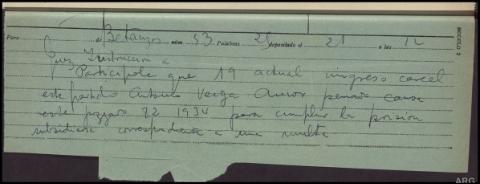 Para de Betanzos núm. 53 Palabras 25 depositado el 21 a las 12
Juez Instrucción
Participole que 19 actual ingreso carcel
este partido Antonio Verga Amor penado causa
este juzgado 82 1934 para cumplir la prision
subsidiaria correspondiente a una multa
MODELO 2
ARG